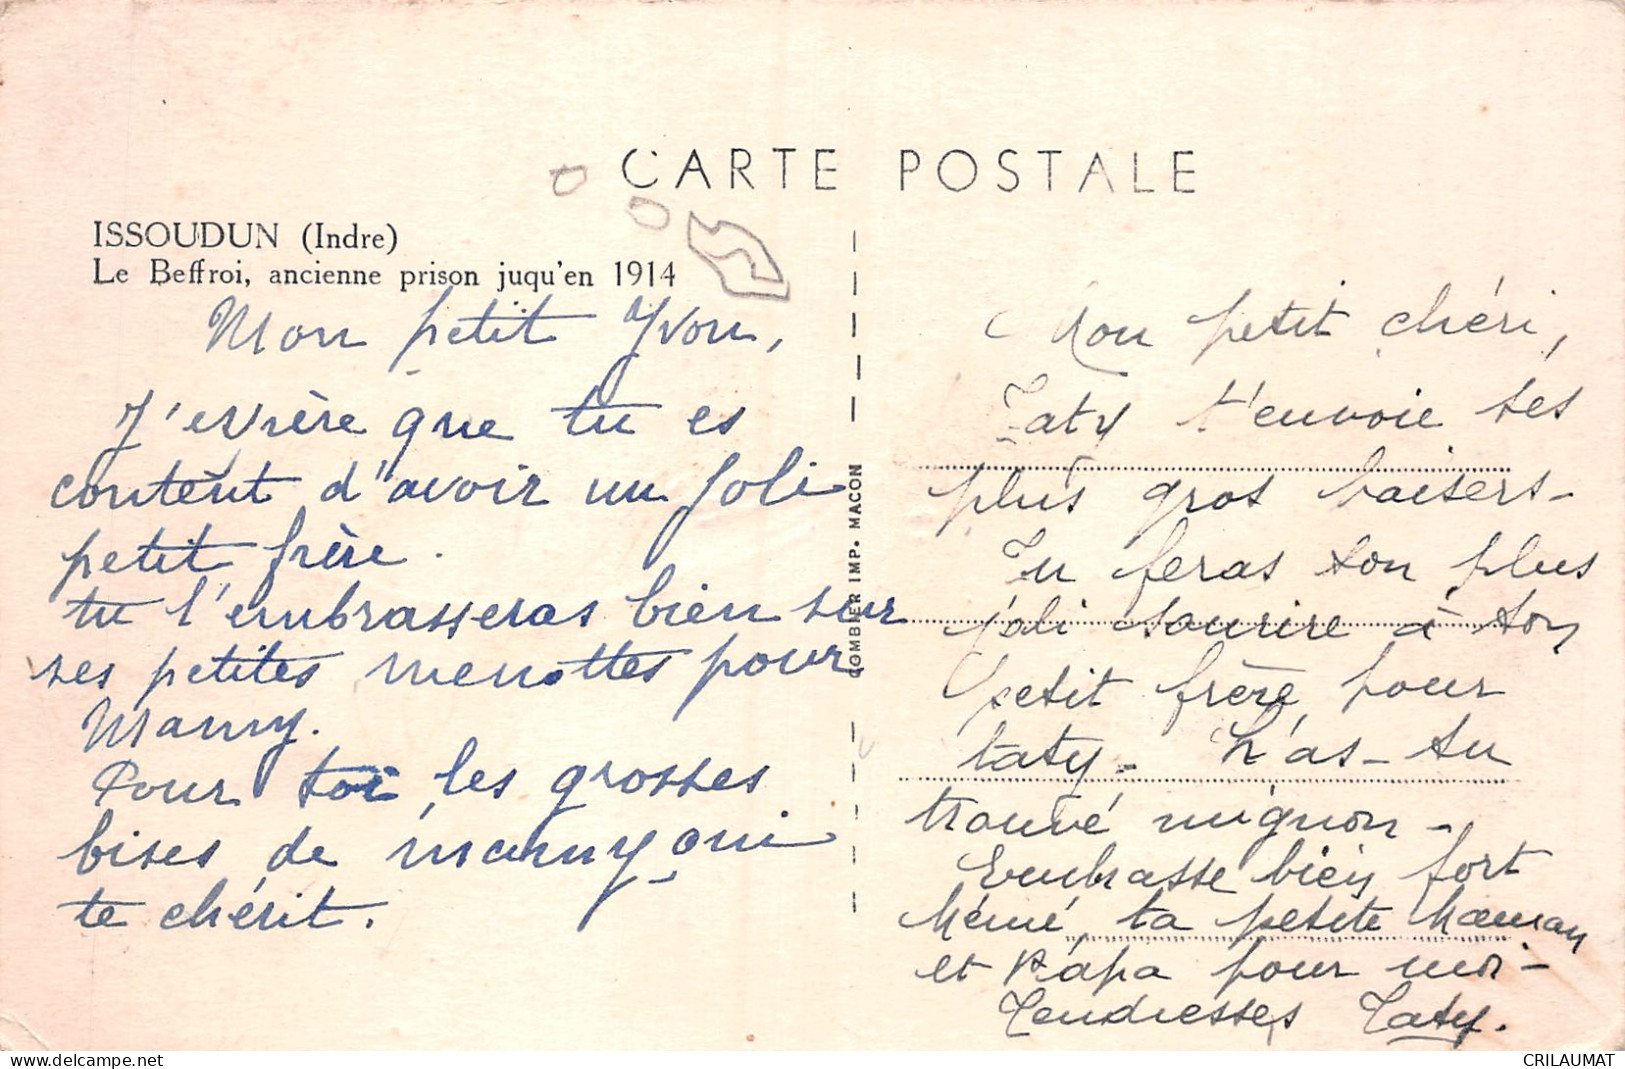 CARTE POSTALE
ISSOUDUN (Indre)
Le Beffroi, ancienne prison juqu'en 1914
Mon petit Yvon,
J'espère que tu es
content d'avoir un joli
petit frère.
tu l'embrasseras bien sur
ses petites menottes pour
Mamy.
Pour toi les grosses
bises de mamy qui
te chérit.
COMBIER IMP. MACON
Mon petit chéri,
Taty t'envoie ses
plus gros baisers-
Tu feras ton plus
joli sourire à ton
petit frère, pour
taty- L'as-tu
trouvé mignon-
Embrasse bien fort
Mémé, ta petite Maman
et Papa pour moi-
Tendresses Taty.
CRILAUMAT